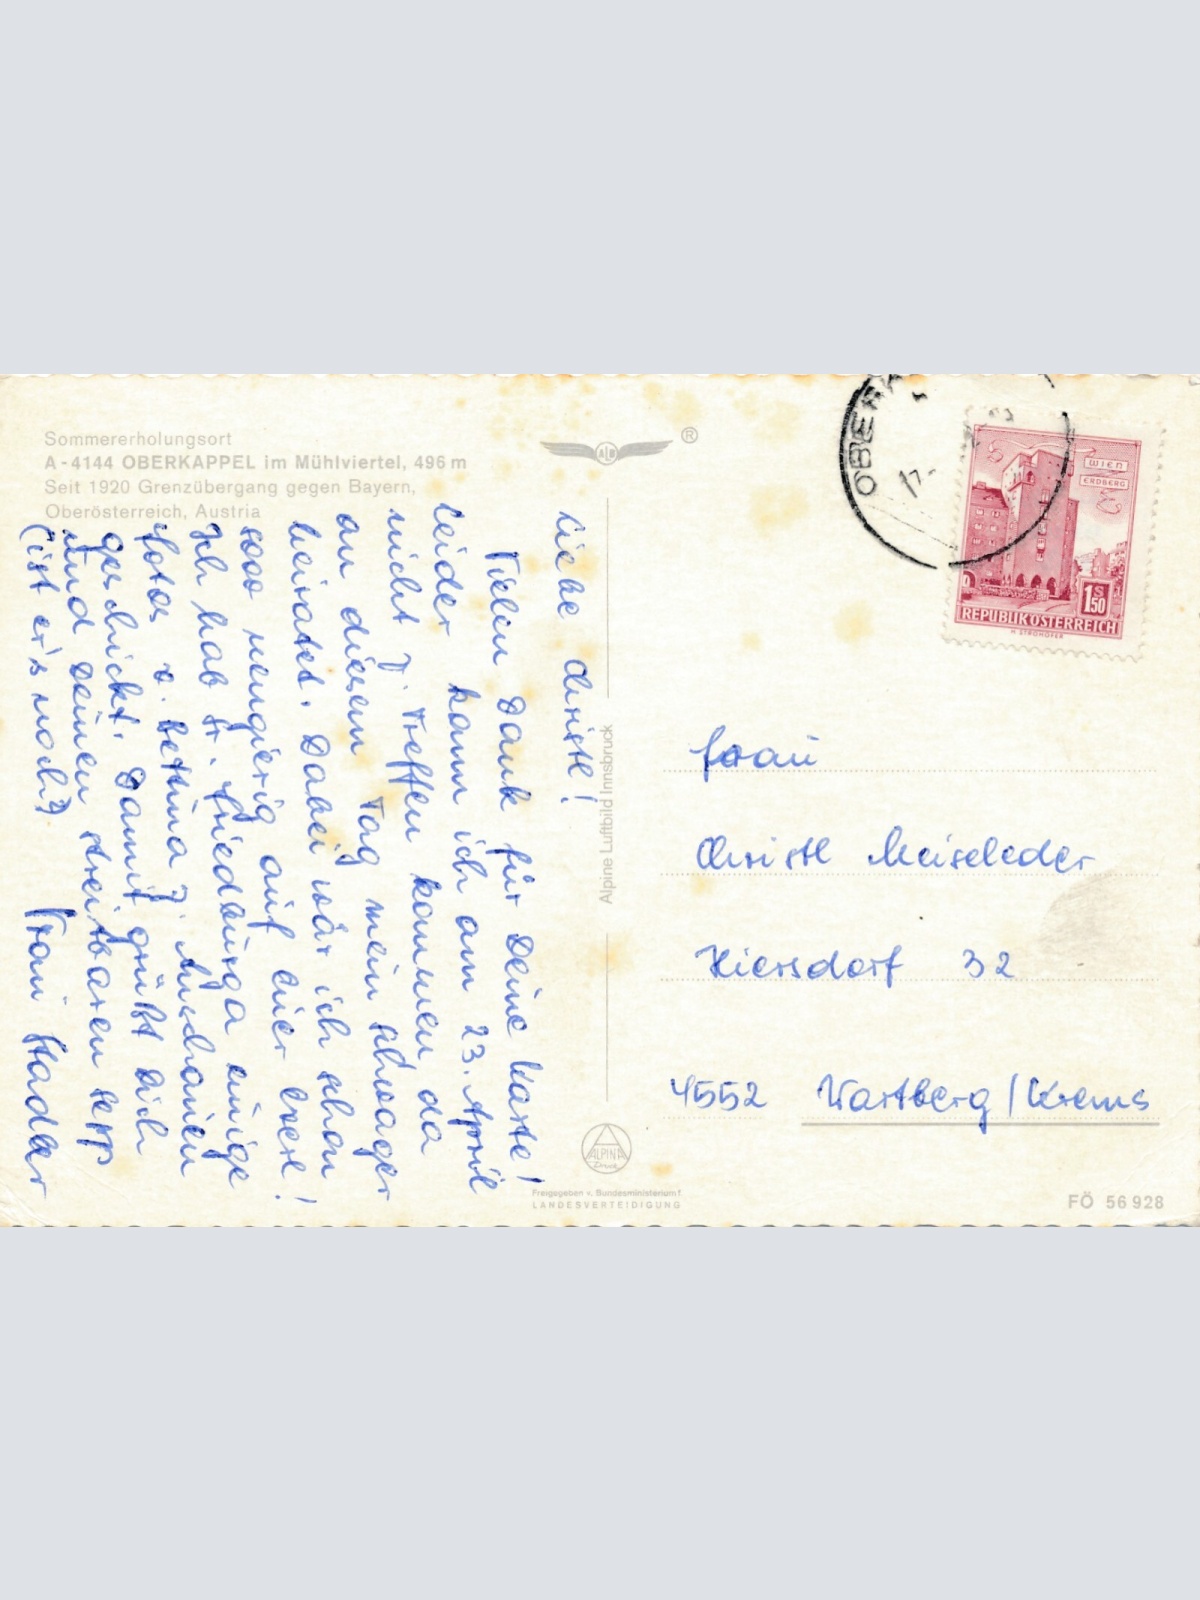 Sommererholungsort
A-4144 OBERKAPPEL im Mühlviertel, 496 m
Seit 1920 Grenzübergang gegen Bayern,
Oberösterreich, Austria
Liebe Christl!
Vielen Dank für Deine Karte!
Leider kann ich am 23. April
nicht z. Treffen kommen, da
an diesem Tag mein Schwager
heiratet. Dabei wär ich schon
sooo neugierig auf eier Evere!
Ich hab Fr. Friedburga einige
Fotos v. Bettina z. Anschauen
geschickt. Damit grüßt Dich
und Deinen streitbaren Sepp
(ist er's noch?)
Trani Stadler
Alpine Luftbild Innsbruck
®
ALPINA
Druck
Freigegeben v. Bundesministerium f.
LANDESVERTEIDIGUNG
OBERK
17.
WIEN
ERDBERG
1 S 50
REPUBLIK ÖSTERREICH
H. STROHOFER
Frau
Christl Meiseleder
Hiersdorf 32
4552 Wartberg/Krems
FÖ 56 928